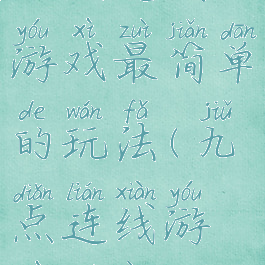 yóu xì zuì jiǎn dān
游戏最简单
de wán fǎ jiǔ
的玩法(九
diǎn lián xiàn yóu
点连线游